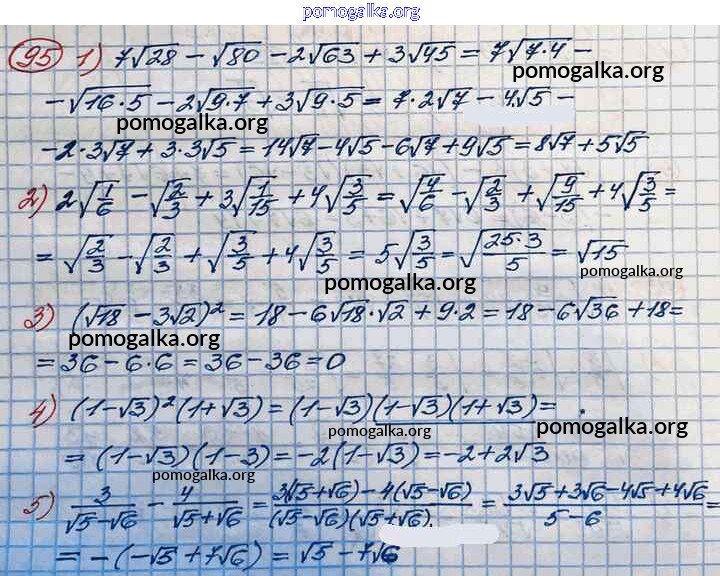 pomogalka.org
95 1) 7√28 − √80 − 2√63 + 3√45 = 7√(7·4) −
pomogalka.org
− √(16·5) − 2√(9·7) + 3√(9·5) = 7·2√7 − 4√5 −
pomogalka.org
− 2·3√7 + 3·3√5 = 14√7 − 4√5 − 6√7 + 9√5 = 8√7 + 5√5
2) 2√(1/6) − √(2/3) + 3√(1/15) + 4√(3/5) = √(4/6) − √(2/3) + √(9/15) + 4√(3/5) =
= √(2/3) − √(2/3) + √(3/5) + 4√(3/5) = 5√(3/5) = √(25·3/5) = √15
pomogalka.org
pomogalka.org
3) (√18 − 3√2)² = 18 − 6√18·√2 + 9·2 = 18 − 6√36 + 18 =
pomogalka.org
= 36 − 6·6 = 36 − 36 = 0
4) (1−√3)²(1+√3) = (1−√3)(1−√3)(1+√3) =
pomogalka.org
pomogalka.org
= (1−√3)(1−3) = −2(1−√3) = −2 + 2√3
pomogalka.org
5) 3/(√5−√6) − 4/(√5+√6) = (3(√5+√6) − 4(√5−√6))/((√5−√6)(√5+√6)) = (3√5+3√6−4√5+4√6)/(5−6) =
pomogalka.org
= −(−√5 + 7√6) = √5 − 7√6